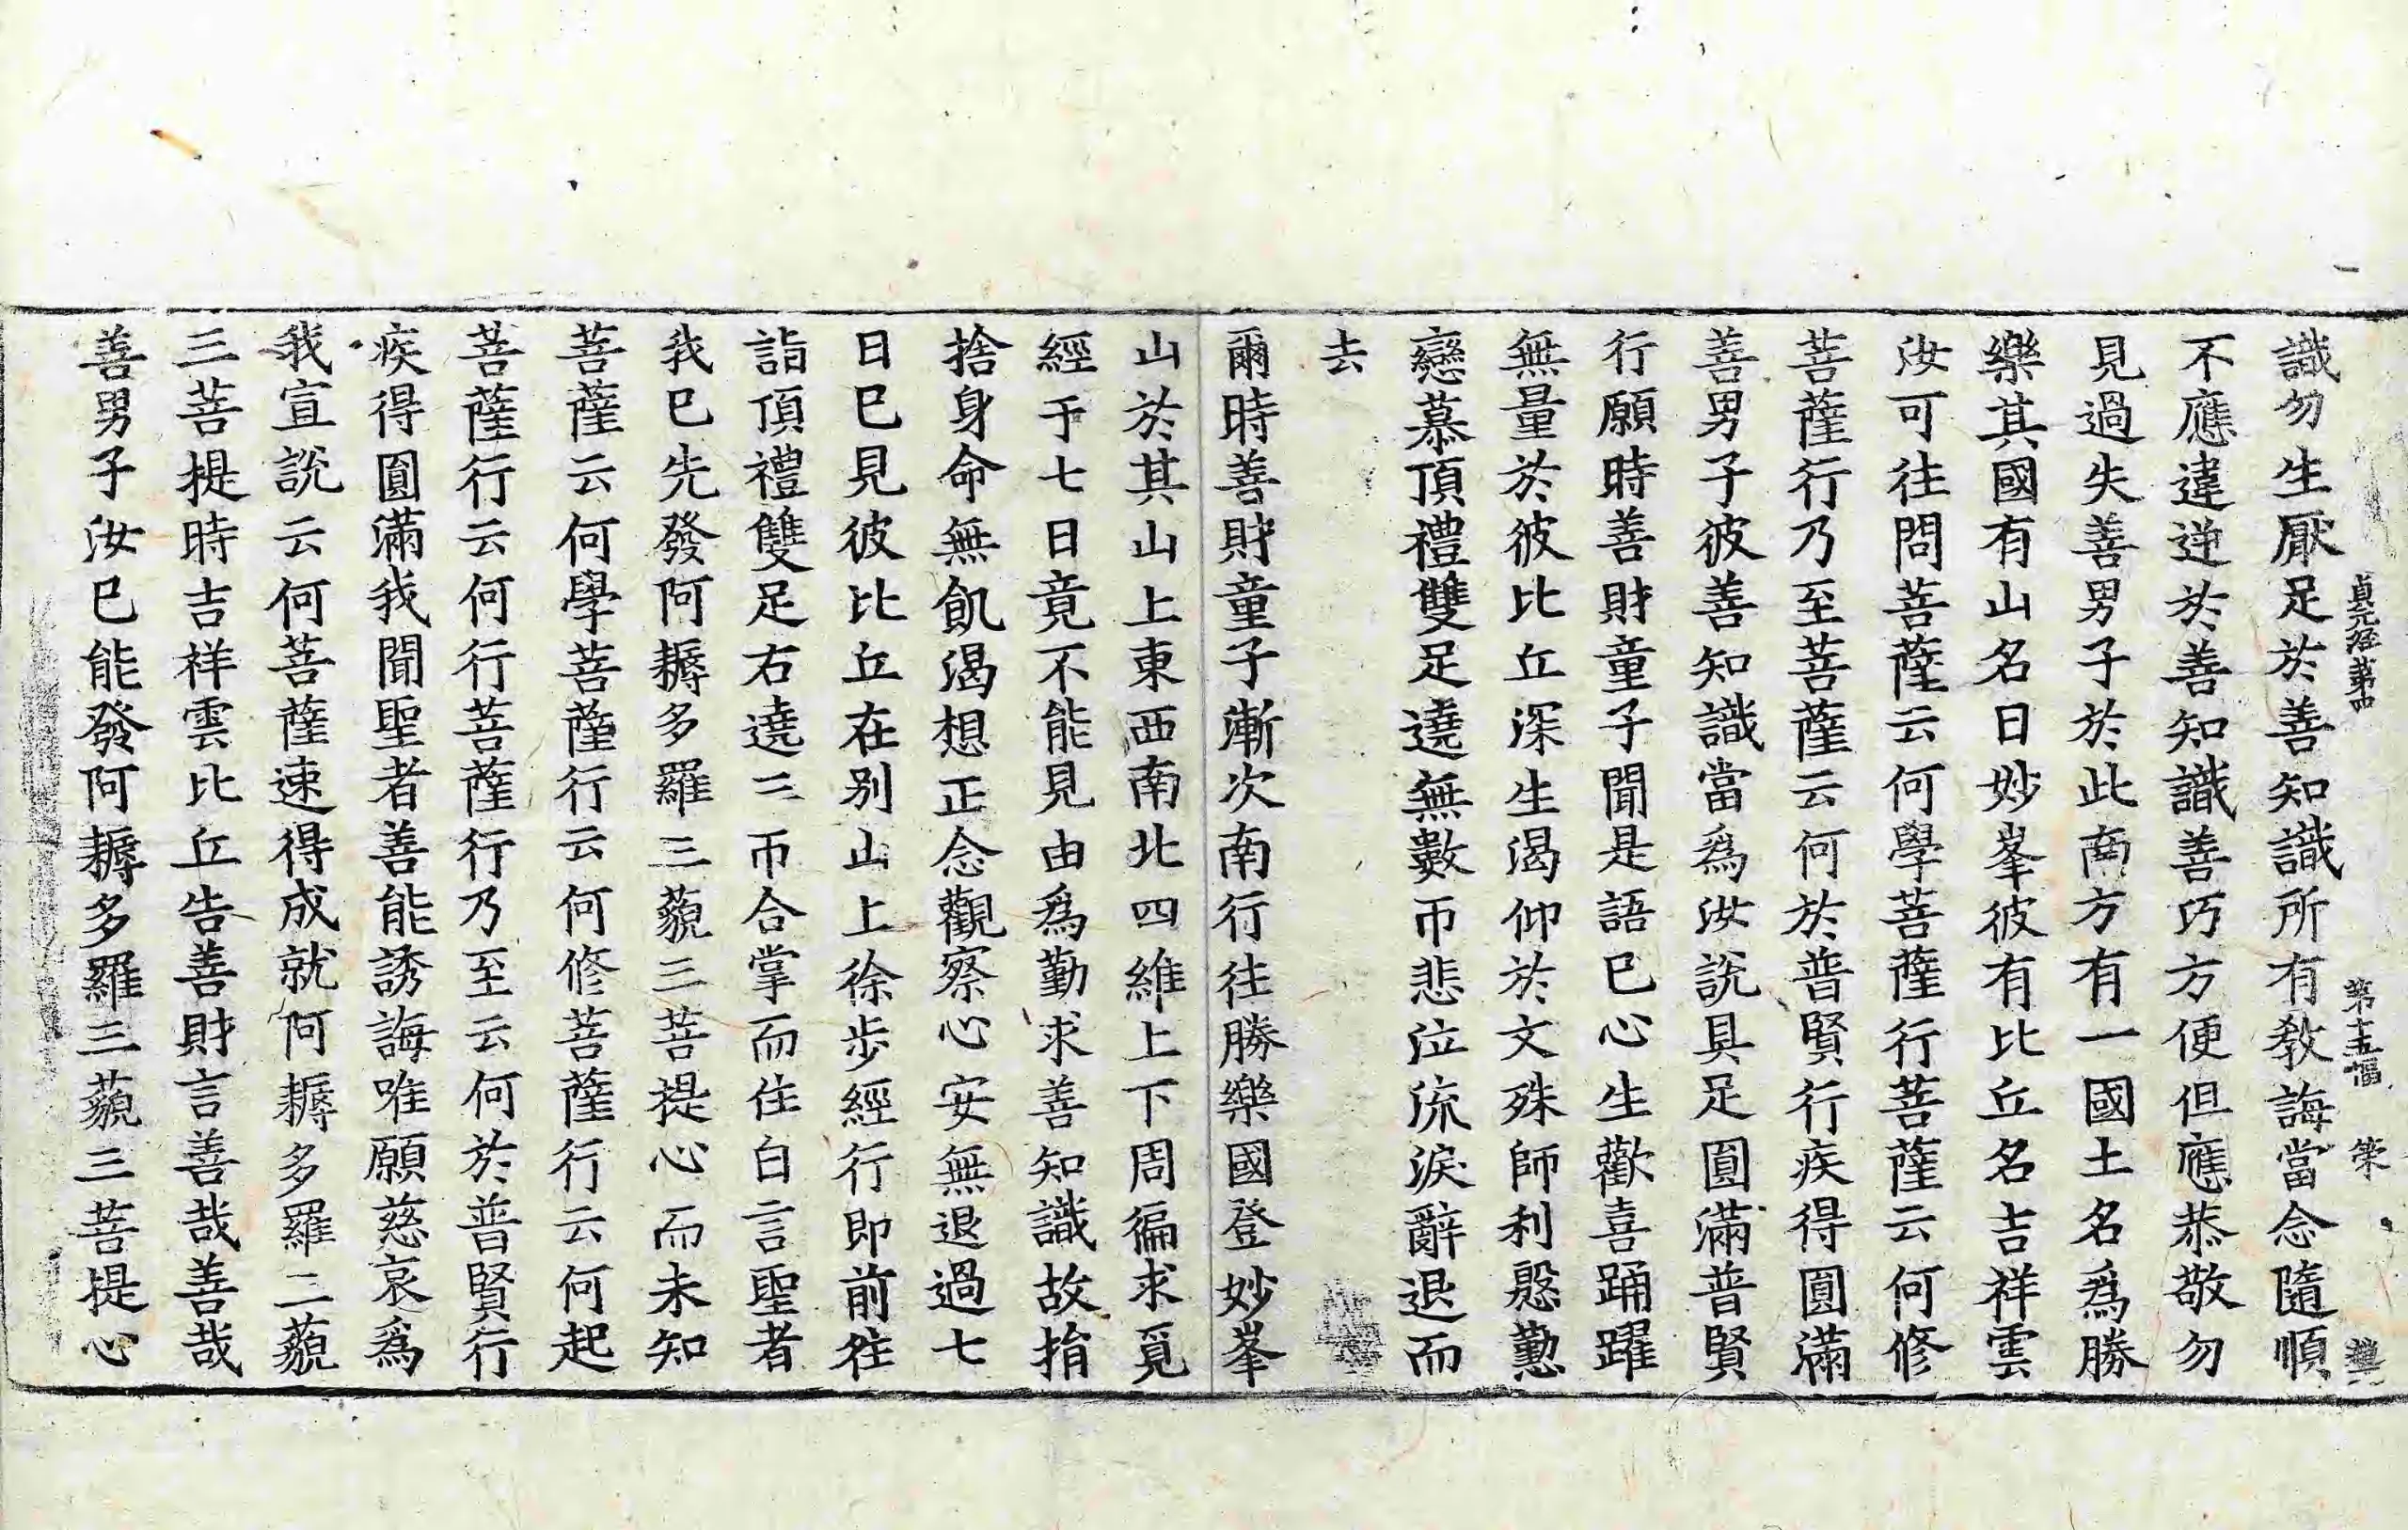 貞元経第四 第十五幅 荣
識勿生厭足於善知識所有教誨當念隨順
不應違逆於善知識善巧方便但應恭敬勿
見過失善男子於此南方有一國土名爲勝
樂其國有山名曰妙峯彼有比丘名吉祥雲
汝可往問菩薩云何學菩薩行菩薩云何修
菩薩行乃至菩薩云何於普賢行疾得圓滿
善男子彼善知識當爲汝說具足圓滿普賢
行願時善財童子聞是語已心生歡喜踊躍
無量於彼比丘深生渴仰於文殊師利慇懃
戀慕頂禮雙足遶無數帀悲泣流淚辭退而
去
爾時善財童子漸次南行往勝樂國登妙峯
山於其山上東西南北四維上下周徧求覓
經于七日竟不能見由爲勤求善知識故捐
捨身命無飢渴想正念觀察心安無退過七
日已見彼比丘在别山上徐步經行即前往
詣頂禮雙足右遶三帀合掌而住白言聖者
我已先發阿耨多羅三藐三菩提心而未知
菩薩云何學菩薩行云何修菩薩行云何起
菩薩行云何行菩薩行乃至云何於普賢行
疾得圓滿我聞聖者善能誘誨唯願慈哀爲
我宣說云何菩薩速得成就阿耨多羅三藐
三菩提時吉祥雲比丘告善財言善哉善哉
善男子汝已能發阿耨多羅三藐三菩提心